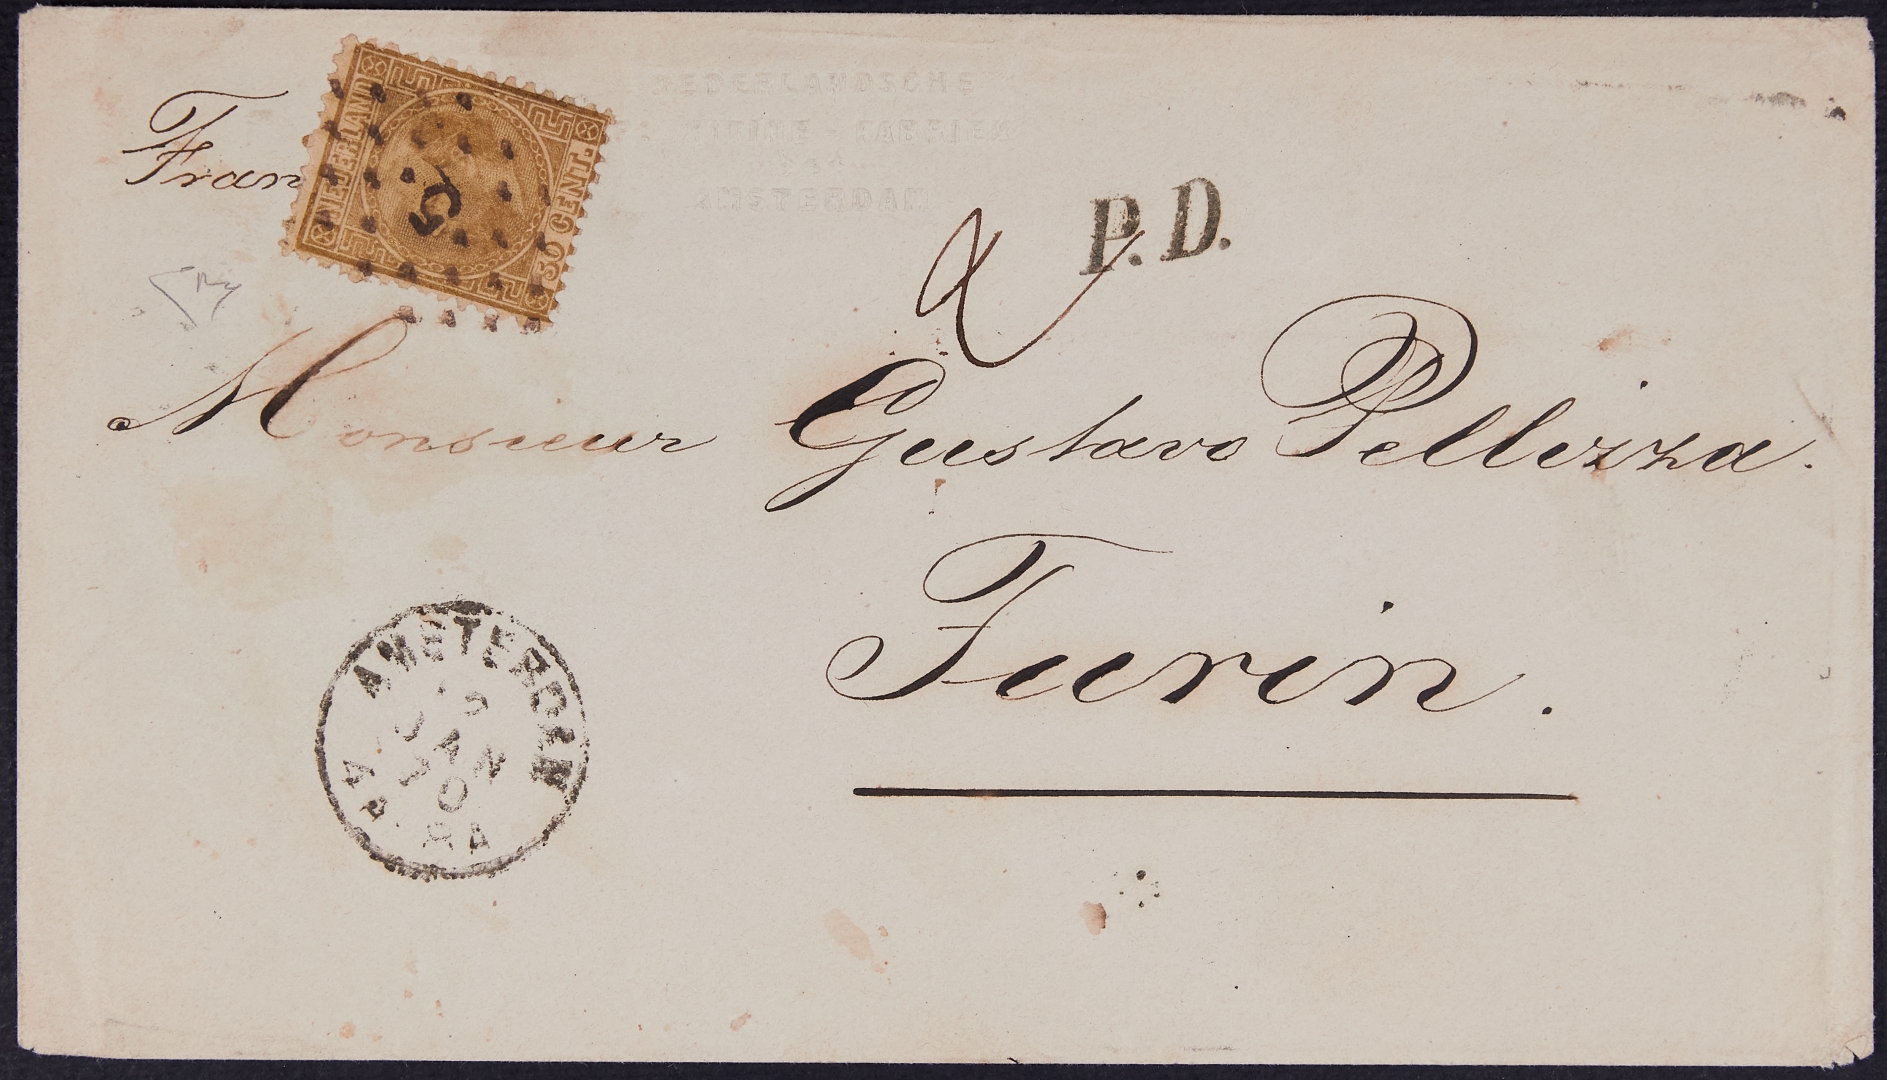 NEDERLANDSCHE
FABRIEK
AMSTERDAM
Fran
NEDERLAND
50 CENT.
5
P.D.
Monsieur Gustavo Pellizza.
Turin.
AMSTERDAM
JAN
70